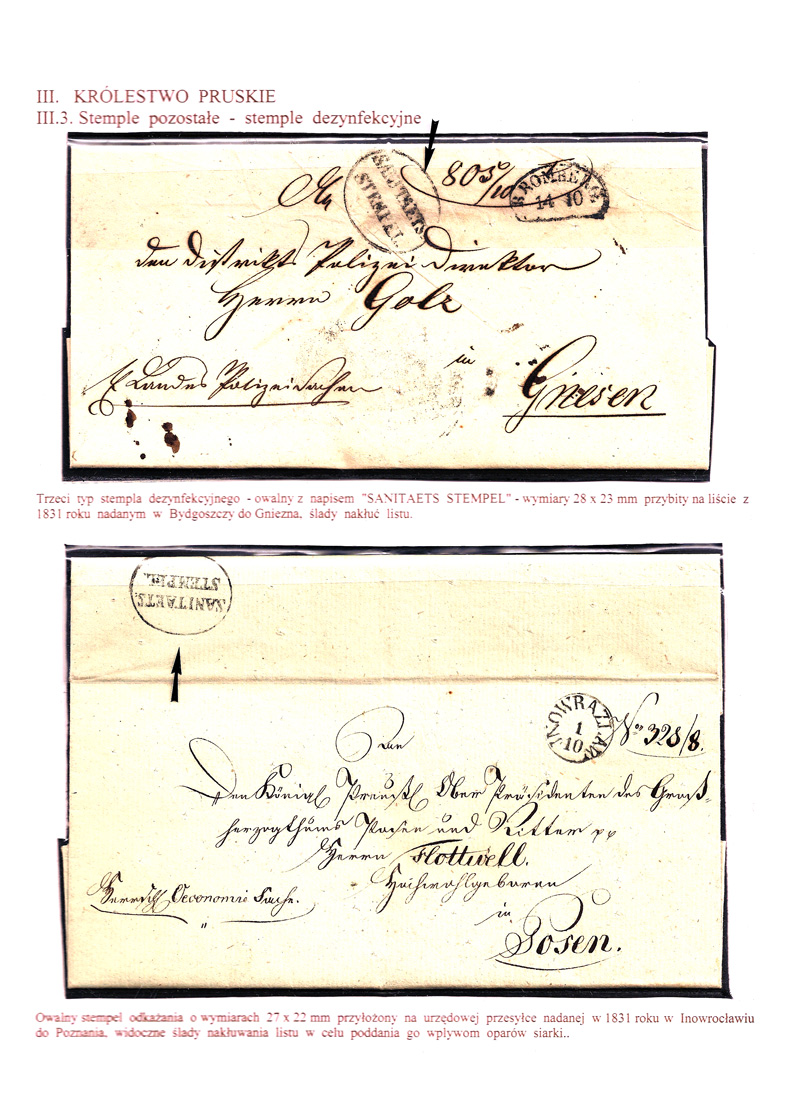 III. KRÓLESTWO PRUSKIE
III.3. Stemple pozostałe - stemple dezynfekcyjne
An
SANITAETS
STEMPEL.
805/10
BROMBERG
14 10
den Distrikts Polizei Direktor
Herrn Golz
in
Gnesen
Landes Polizei Sachen
Trzeci typ stempla dezynfekcyjnego - owalny z napisem "SANITAETS STEMPEL" - wymiary 28 x 23 mm przybity na liście z
1831 roku nadanym w Bydgoszczy do Gniezna, ślady nakłuć listu.
SANITAETS.
STEMPEL.
INOWRAZLAW
1
10
No 328/8.
An
Den Königl Preußl Ober Präsidenten des Groß-
herzogthums Posen und Ritter pp
Herrn Flottwell.
Hochwohlgeboren
Herrschl Oeconomie Sache.
in
Posen.
Owalny stempel odkażania o wymiarach 27 x 22 mm przyłożony na urzędowej przesyłce nadanej w 1831 roku w Inowrocławiu
do Poznania, widoczne ślady nakłuwania listu w celu poddania go wpływom oparów siarki..